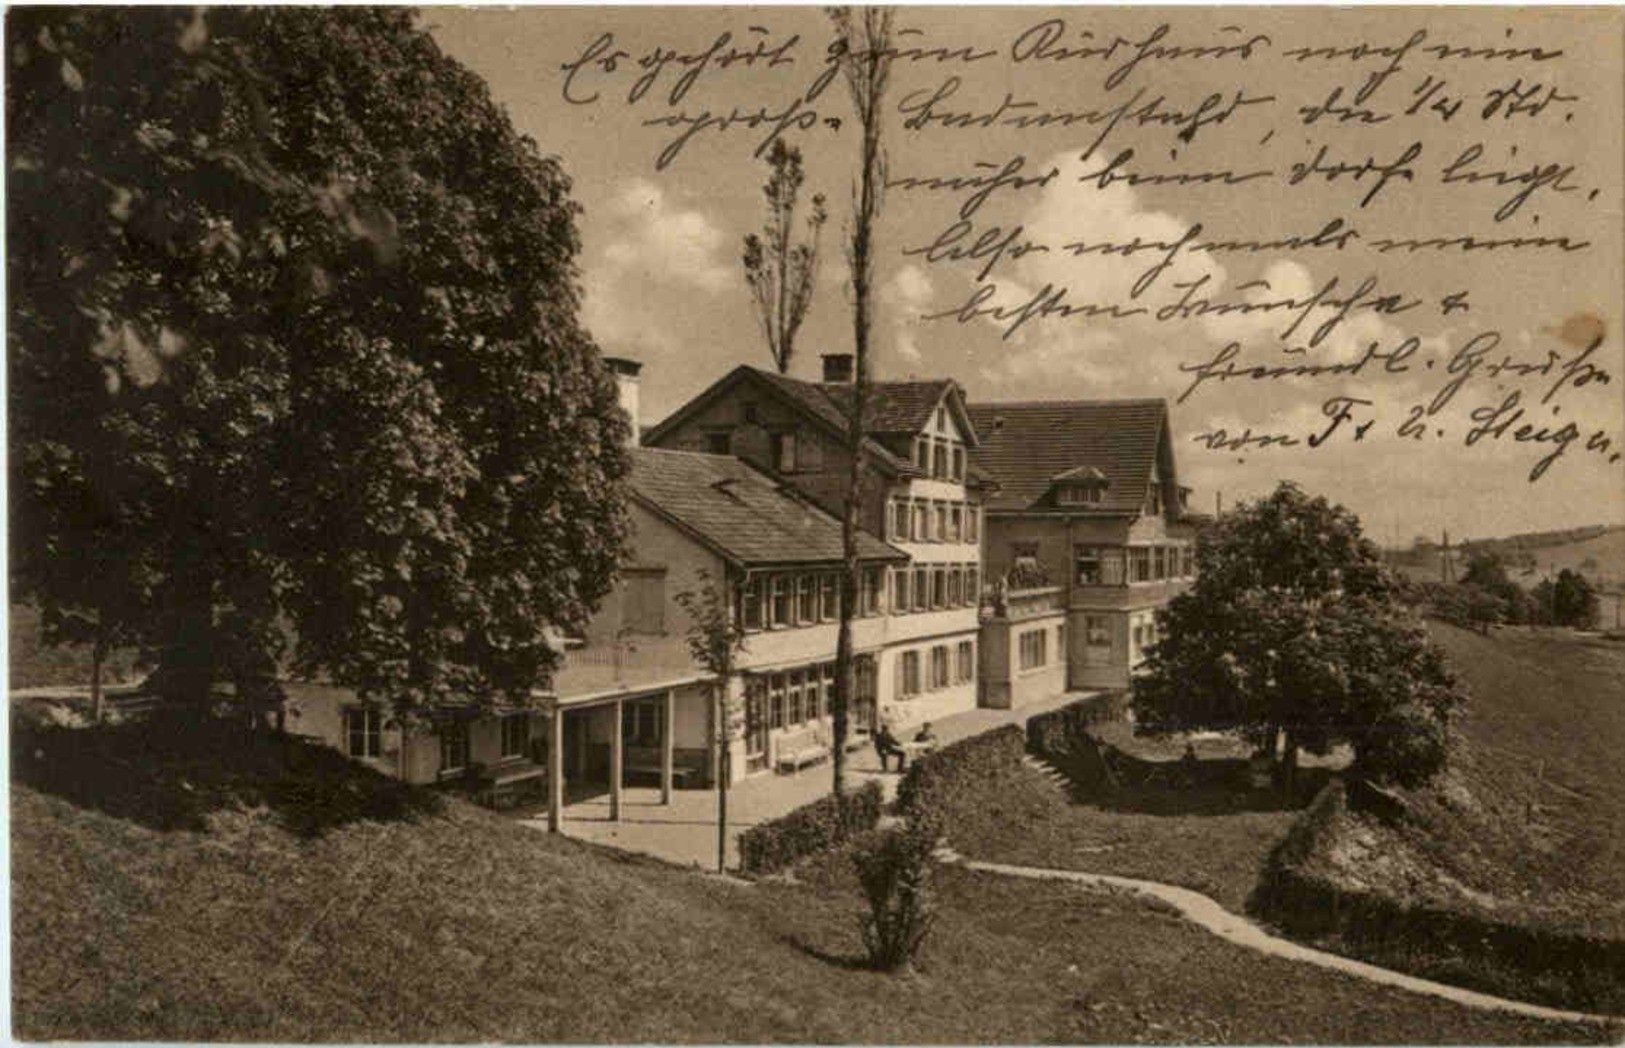 Es gehört zum Kurhaus noch ein
große Badeanstalt, die 1/4 Std.
näher beim Dorfe liegt.
Also nochmals meine
besten Wünsche &
freundl. Grüße
von F. &